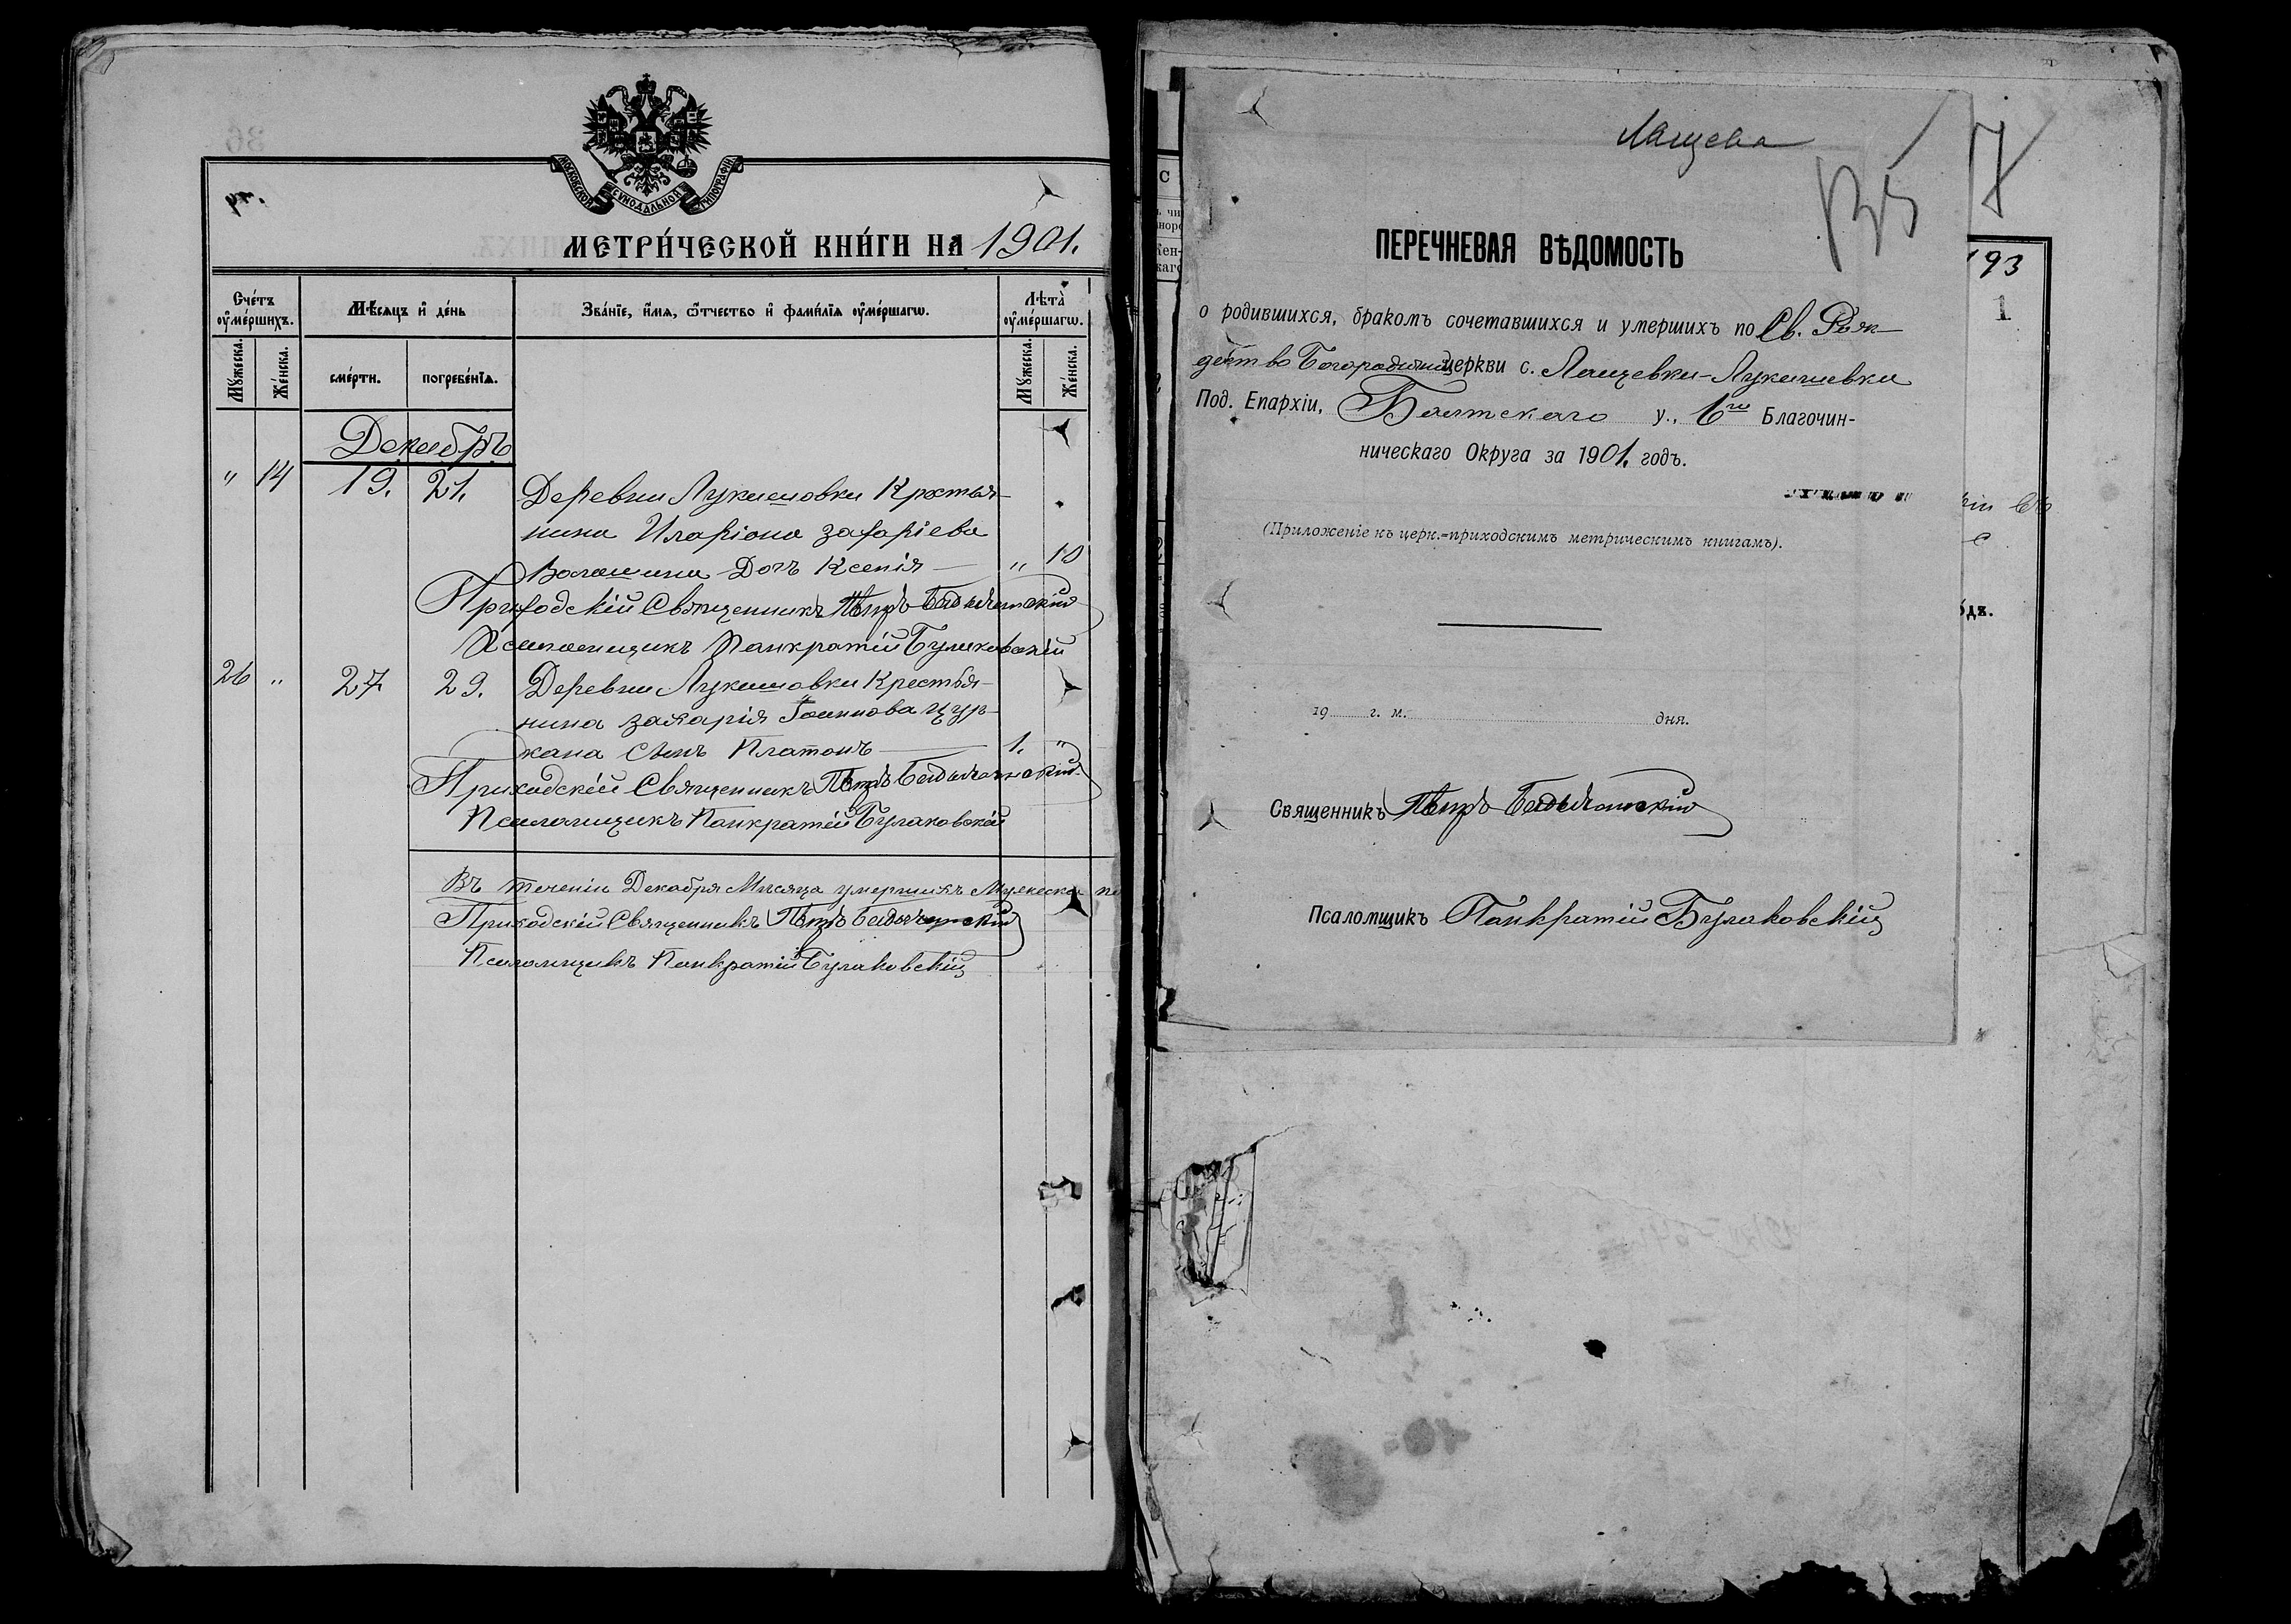 МОСКОВСКОЙ СѴНОДАЛЬНОЙ ТИПОГРАФІИ
МЕТРИ́ЧЕСКОЙ КНИ́ГИ НА 1901.
Сче́тъ оу҆ме́ршихъ.
Мѣ́сяцъ и҆ де́нь
Зва́нїе, и҆́мя, ѻ҆́тчество и҆ фами́лїя оу҆ме́ршагѡ.
Лѣта̀ оу҆ме́ршагѡ.
Мꙋ́жеска.
Же́нска.
сме́рти.
погребе́нїя.
Мꙋ́жеска.
Же́нска.
Декабрь
" 14 19. 21. Деревни Лукашовки Крестья-
нина Иларіона Захаріева
Волошина Дочь Ксенія — " 10
Приходскій Священникъ Петръ
Псаломщикъ Панкратій Булаковскій
26 " 27 29. Деревни Лукашовки Крестья-
нина Захарія Іоаннова Цур-
кана Сынъ Платонъ — 1. "
Приходскій Священникъ Петръ
Псаломщикъ Панкратій Булаковскій
Въ теченіи Декабря Мѣсяца умершихъ Мужеска по
Приходскій Священникъ Петръ
Псаломщикъ Панкратій Булаковскій
Лащева
7
193
1
ПЕРЕЧНЕВАЯ ВѢДОМОСТЬ
о родившихся, бракомъ сочетавшихся и умершихъ по Св. Рож-
дество Богородичной церкви с. Лащевки-Лукашевки
Под. Епархіи, Балтскаго у., 6го Благочин-
ническаго Округа за 1901. годъ.
(Приложеніе къ церк.=приходскимъ метрическимъ книгамъ).
19 г. м. дня.
Священникъ Петръ
Псаломщикъ Панкратій Булаковскій